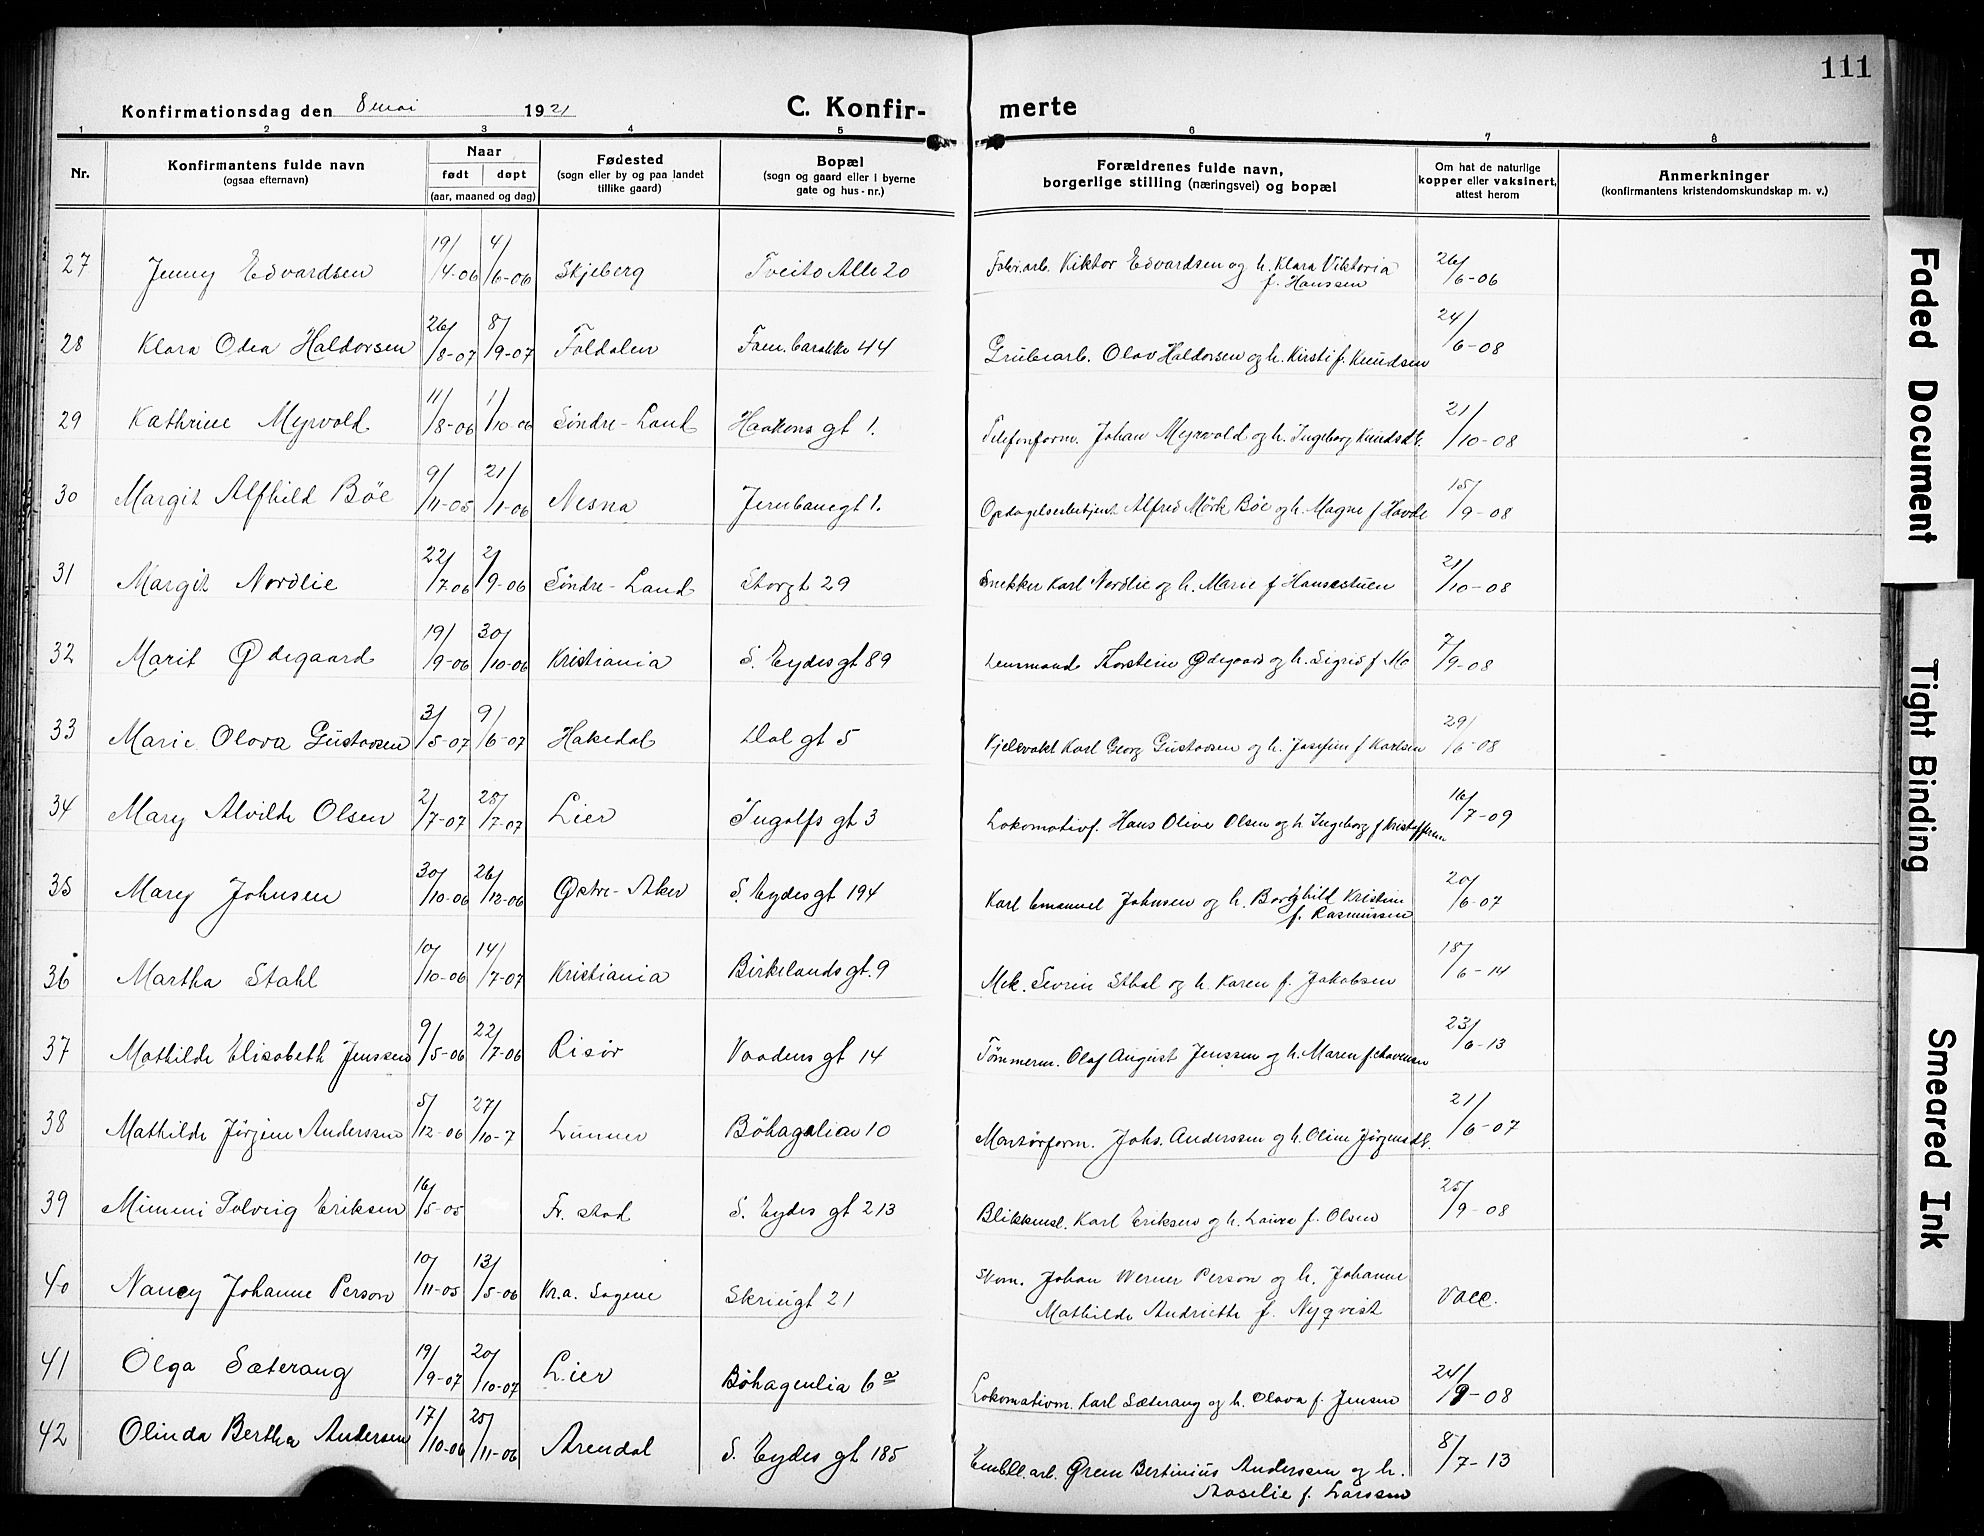 111
Konfirmationsdag den 8 mai 1921 C. Konfir- merte
1 2 3 4 5 6 7 8
Nr. Konfirmantens fulde navn (ogsaa efternavn) Naar født døpt (aar, maaned og dag) Fødested (sogn eller by og paa landet tillike gaard) Bopæl (sogn og gaard eller i byerne gate og hus-nr.) Forældrenes fulde navn, borgerlige stilling (næringsvei) og bopæl Om hat de naturlige kopper eller vaksinert, attest herom Anmerkninger (konfirmantens kristendomskundskap m. v.)
27 Jenny Edvardsen 19/4-06 4/6-06 Skjeberg Tveito Alle 20 Fabr.arb. Kiktor Edvardsen og h. Klara Viktoria f. Hanssen 26/6-06
28 Klara Odea Haldorsen 26/8-07 8/9-07 Foldalen Fam. barakke 44 Grubearb. Olav Haldorsen og h. Kirsti f. Knudsen 24/6-08
29 Kathrine Myrvold 11/8-06 1/10-06 Søndre-Land Haakons gt 1. Telefonform. Johan Myrvold og h. Ingeborg Knudsdt. 21/10-08
30 Margit Alfhild Bøe 9/11-05 21/1-06 Nesna Jernbanegt 1. Opdagelsesbetjent Alfred Mörk Bøe og h. Magne f Havde 15/9-08
31 Margit Nordlie 22/7-06 2/9-06 Søndre-Land Storgt 29 Snekker Karl Nordlie og h. Marie f Hansestuen 21/10-08
32 Marit Ødegaard 19/9-06 30/10-06 Kristiania S. Eydes gt 89 Lensmand Thorstein Ødegaard og h. Sigrid f Mo 7/9-08
33 Marie Olava Gustavsen 3/5-07 9/6-07 Hakedal Dal gt 5 Kjelevakt Karl Georg Gustavsen og h. Josefine f Karlsen 29/6-08
34 Mary Alvilde Olsen 2/7-07 28/7-07 Lier Ingolfs gt 3 Lokomotivf. Hans Olive Olsen og h Ingeborg f Kristoffersen 16/7-09
35 Mary Johnsen 30/10-06 26/12-06 Østre-Aker S. Eydes gt 194 Karl Emanuel Johnsen og h. Borghild Kristine f. Rasmussen 20/6-07
36 Martha Stahl 10/10-06 14/7-07 Kristiania Birkelands gt. 9 Mek. Sevrin Sthal og h. Karen f. Jakobsen 18/6-14
37 Mathilde Elisabeth Jenssen 9/5-06 22/7-06 Risør Vaadens gt 14 Tømmerm. Olaf August Jenssen og h. Maren f. 23/6-13
38 Mathilde Jörgine Anderssen 5/12-06 27/10-7 Lunner Böhagalian 10 Montørform. Johs. Anderssen og h. Oline Jörgensdt. 21/6-07
39 Mimmi Solveig Eriksen 16/5-05 Fr. stad S. Eydes gt 213 Blikkensl. Karl Eriksen og h. Laura f. Olsen 25/9-08
40 Nancy Johanne Person 10/11-05 13/5-06 Kr.a. Sagene Skriugt 21 Skom. Johan Werner Person og h. Johanne Mathilde Andriette f. Nyqvist Vacc.
41 Olga Sæterang 19/9-07 20/10-07 Lier Böhagenlia 6a Lokomativm. Karl Sæterang og h. Olava f. Jensen 24/9-08
42 Olinda Bertha Andersen 17/10-06 25/11-06 Arendal S. Eydes gt 185 Emball. arb. Grem Bertinius Anderssen og h. Aaselie f. Larssen 8/7-13
Faded Document
Tight Binding
Smeared Ink